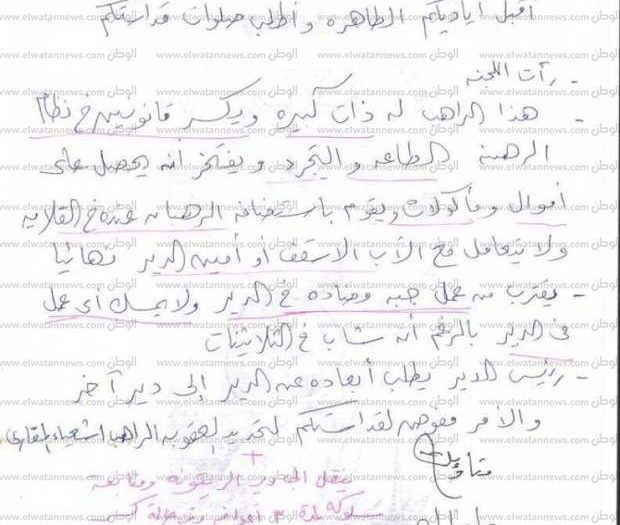 أقبل أياديكم الطاهره وأطلب صلوات قداستكم
- رأت اللجنه
- هذا الراهب له ذات كبيره ويكسر قانونين في نظام
الرهبنة الطاعه والتجرد ويفتخر أنه يحصل على
أموال ومأكولات ويقوم باستضافة الرهبان عنده في القلايه
ولا يتعامل مع الأب الأسقف أو أمين الدير نهائيا
- يقترب من عمل جبهه مضاده في الدير ولا يمسك أى عمل
فى الدير بالرغم أنه شاب في الثلاثينات
- رئيس الدير يطلب أبعاده عن الدير إلى دير آخر
والأمر مفوض لقداستكم لتحديد عقوبه الراهب اشعياء المقارى
ينقل الى دير الزيتونه ومتابعه
سلوكه لمدة
الوطن www.elwatannews.com